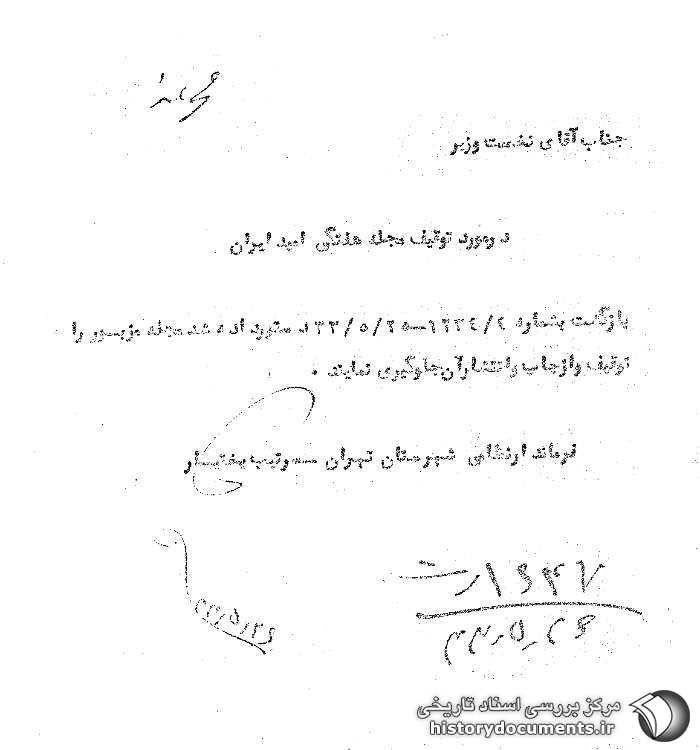 محرمانه
جناب آقای نخست وزیر
درمورد توقیف مجله هفتگی امید ایران
بازگشت بشماره ۱۲۳٤/٤ـ۳۳/۵/۲۵ دستورداده شد مجله مزبور را
توقیف و از چاپ و انتشار آن جلوگیری نمایند .
فرماندار نظامی شهرستان تهران سرتیپ بختیار
۳۳/۵/۲۶
۳۳٫۵٫۲۶
مرکز بررسی اسناد تاریخی
historydocuments.ir